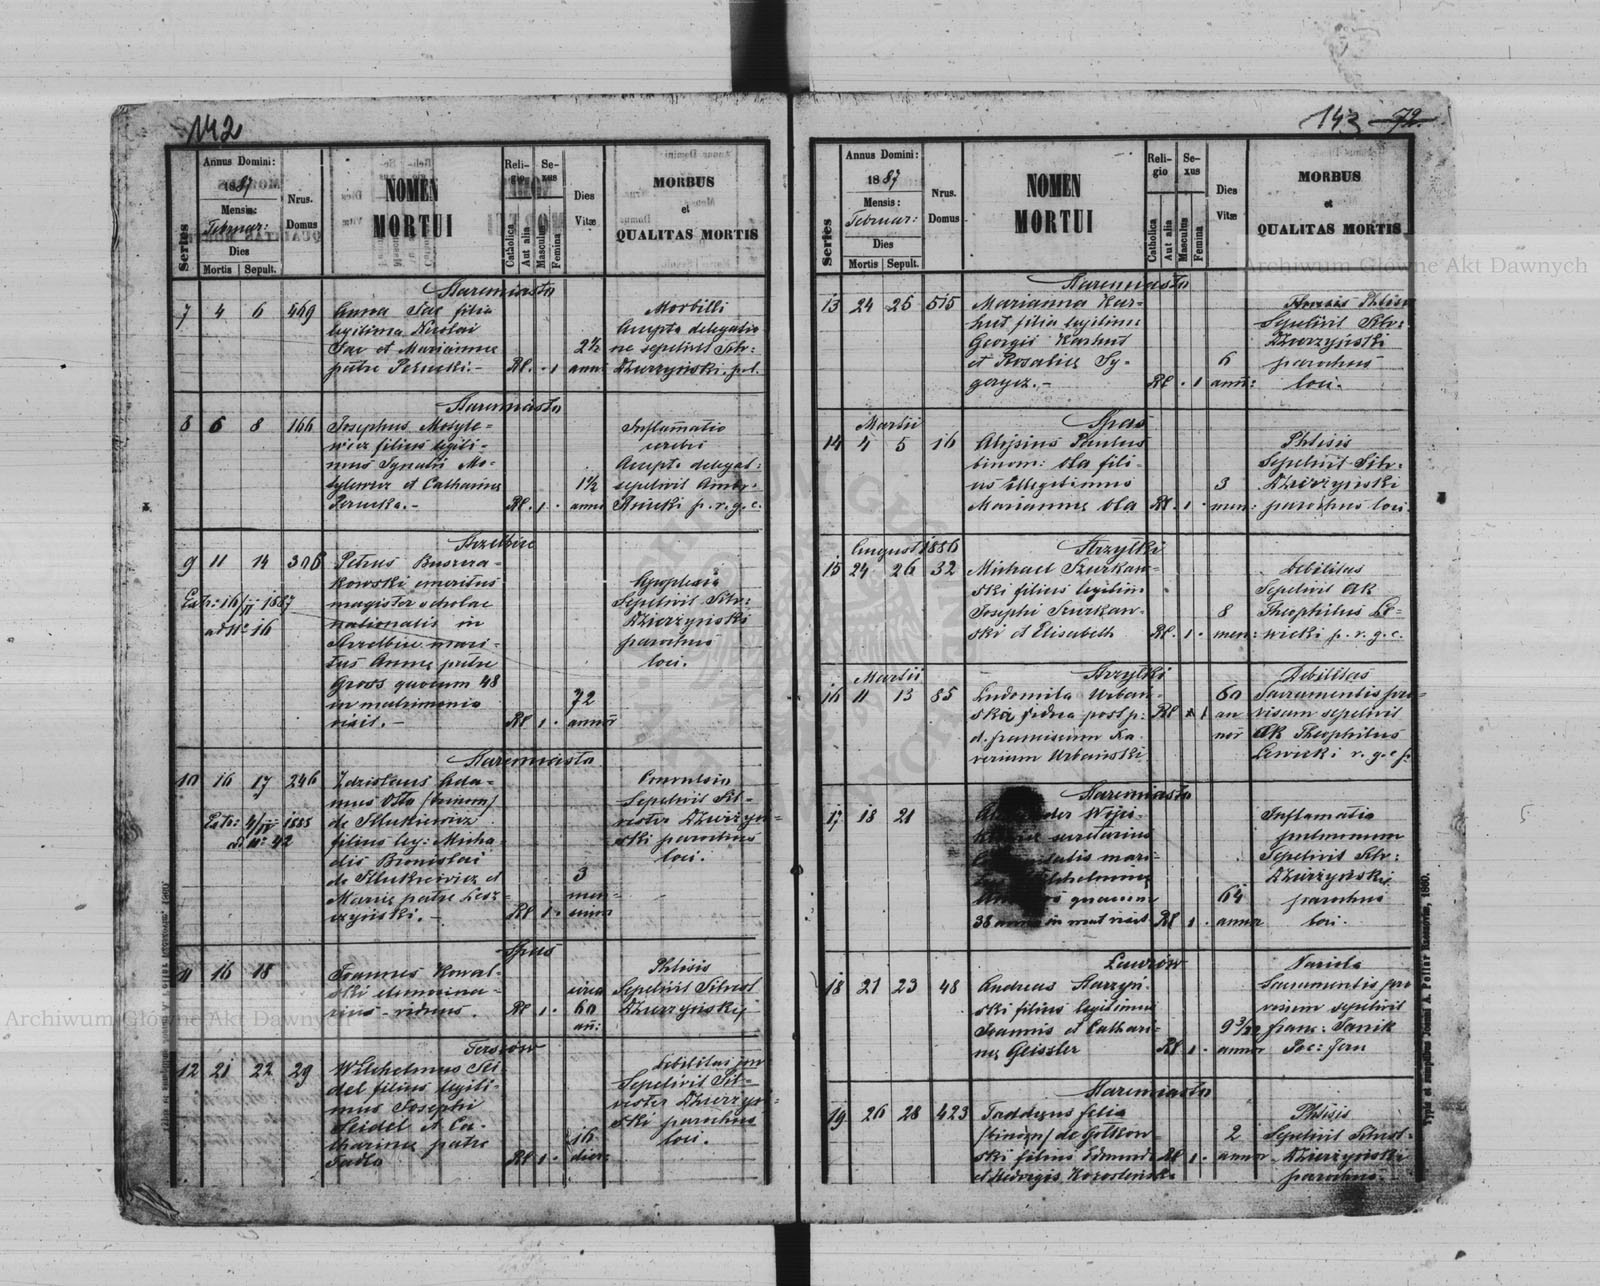 142
Annus Domini:
1887
Mensis:
Februar:
Dies
Mortis Sepult.
Series
Nrus. Domus
NOMEN MORTUI
Religio
Catholica
Aut alia
Sexus
Masculus
Femina
Dies Vitæ
MORBUS
et
QUALITAS MORTIS
Staremiasto
7 4 6 469
Anna Sac filia
legitima Nicolai
Sac et Mariannæ
patre Perucki.-
Rl. . 1
2½
anni
Morbilli
Accepta delegatio
ne sepelivit Silv:
Dzierzyński p.l.
Staremiasto
8 6 8 166
Josephus Mosyle-
wicz filius legiti-
mus Ignatii Mo-
sylewicz et Catharina
Perucka.-
Rl. 1 .
1½
anni
Inflamatio
cerebri
Accepta delegat:
sepelivit Ambr.
p.r.g.c.
Strzelbice
9 11 14 306
Petrus
kowski emeritus
magister scholae
nationalis in
Strzelbice mari-
tus Annæ patre
Gross quocum 48
in matrimonio
vixit.-
Extr: 16/II 1887
ad No 16
Rl 1 .
72
annor
Apoplexia
Sepelivit Silv:
Dzierzyński
parochus
loci.
Staremiasto
10 16 17 246
Zdzislaus Ada-
mus Otto /trinom/
de Illukiewicz
filius leg: Micha
elis Bronislai
de Illukiewicz et
Mariæ patre Lesz-
czyński.-
Extr: 4/IV 1888
ad No 42
Rl 1 .
3
men-
Convulsio
Sepelivit Sil-
vester Dzierzyń-
ski parochus
loci.
Spas
11 16 18
Joannes Kowal-
ski elemosina-
rius - viduus.
Rl 1 .
circa
60
an:
Phtisis
Sepelivit Silvest
Dzierzyński
Terszow
12 21 22 29
Wilhelmus Sei-
del filius legiti-
mus Josephi
Seidel et Ca-
tharinæ patre
Rl 1 .
16
dier:
Debilitas
Sepelivit Sil-
vester Dzierzyń-
ski parochus
loci.
143 72.
Annus Domini:
1887
Mensis:
Februar:
Dies
Mortis Sepult.
Series
Nrus. Domus
NOMEN MORTUI
Religio
Catholica
Aut alia
Sexus
Masculus
Femina
Dies Vitæ
MORBUS
et
QUALITAS MORTIS
Staremiasto
13 24 26 515
Marianna Kar-
hut filia legitima
Georgii Karhut
et Rosaliæ Sy-
geryez.-
Rl . 1
6
ann:
Phtisis
Sepelivit Silv:
Dzierzyński
parochus
loci.
Martii Spas
14 4 5 16
Alojsius Paulus
binom: Ola fili-
us illegitimus
Mariannæ Ola
Rl . 1 .
3
men:
Phtisis
Sepelivit Silv:
Dzierzyński
parochus loci.
August 1886 Strzyłki
15 24 26 32
Michael Szurkaw-
ski filius legitim
Josephi Szurkaw-
ski et Elisabeth
Rl . 1 .
8
men:
Debilitas
Sepelivit AR
Theophilus Le-
wicki p.r.g.c.
Martii Strzyłki
16 11 13 85
Ludomila Urban-
ska vidua post p:
d. franciscum Xa-
verium Urbański
Rl 1
60
an
nor
Debilitas
Sacramentis pro-
visam sepelivit
AR Theophilus
Lewicki r.g.c.p.
Staremiasto
17 18 21
Wojci-
secretarius
mari-
quacum
38 annis in mat vixit
Rl 1 .
64
annor
Inflamatio
pulmonum
Sepelivit Silv:
Dzierzyński
parochus
loci.
Lawrow
18 21 23 48
Andreas Starzyń-
ski filius legitimus
Joannis et Cathari-
næ Geissler
Rl 1 .
annor
Variola
Sacramentis pro
visum sepelivit
franc: Janik
Staremiasto
19 26 28 423
Taddeus filia
/binom/ de Gołkow-
ski filius Edmundi
et Hedvigis
Rl 1 .
2
annor
Phtisis
Sepelivit Silvest-
Dzierzyński
parochus
Typis et sumptibus Joannis A. Pellar Resoviæ, 1880.
Archiwum Główne Akt Dawnych
Archiwum Główne Akt Dawnych